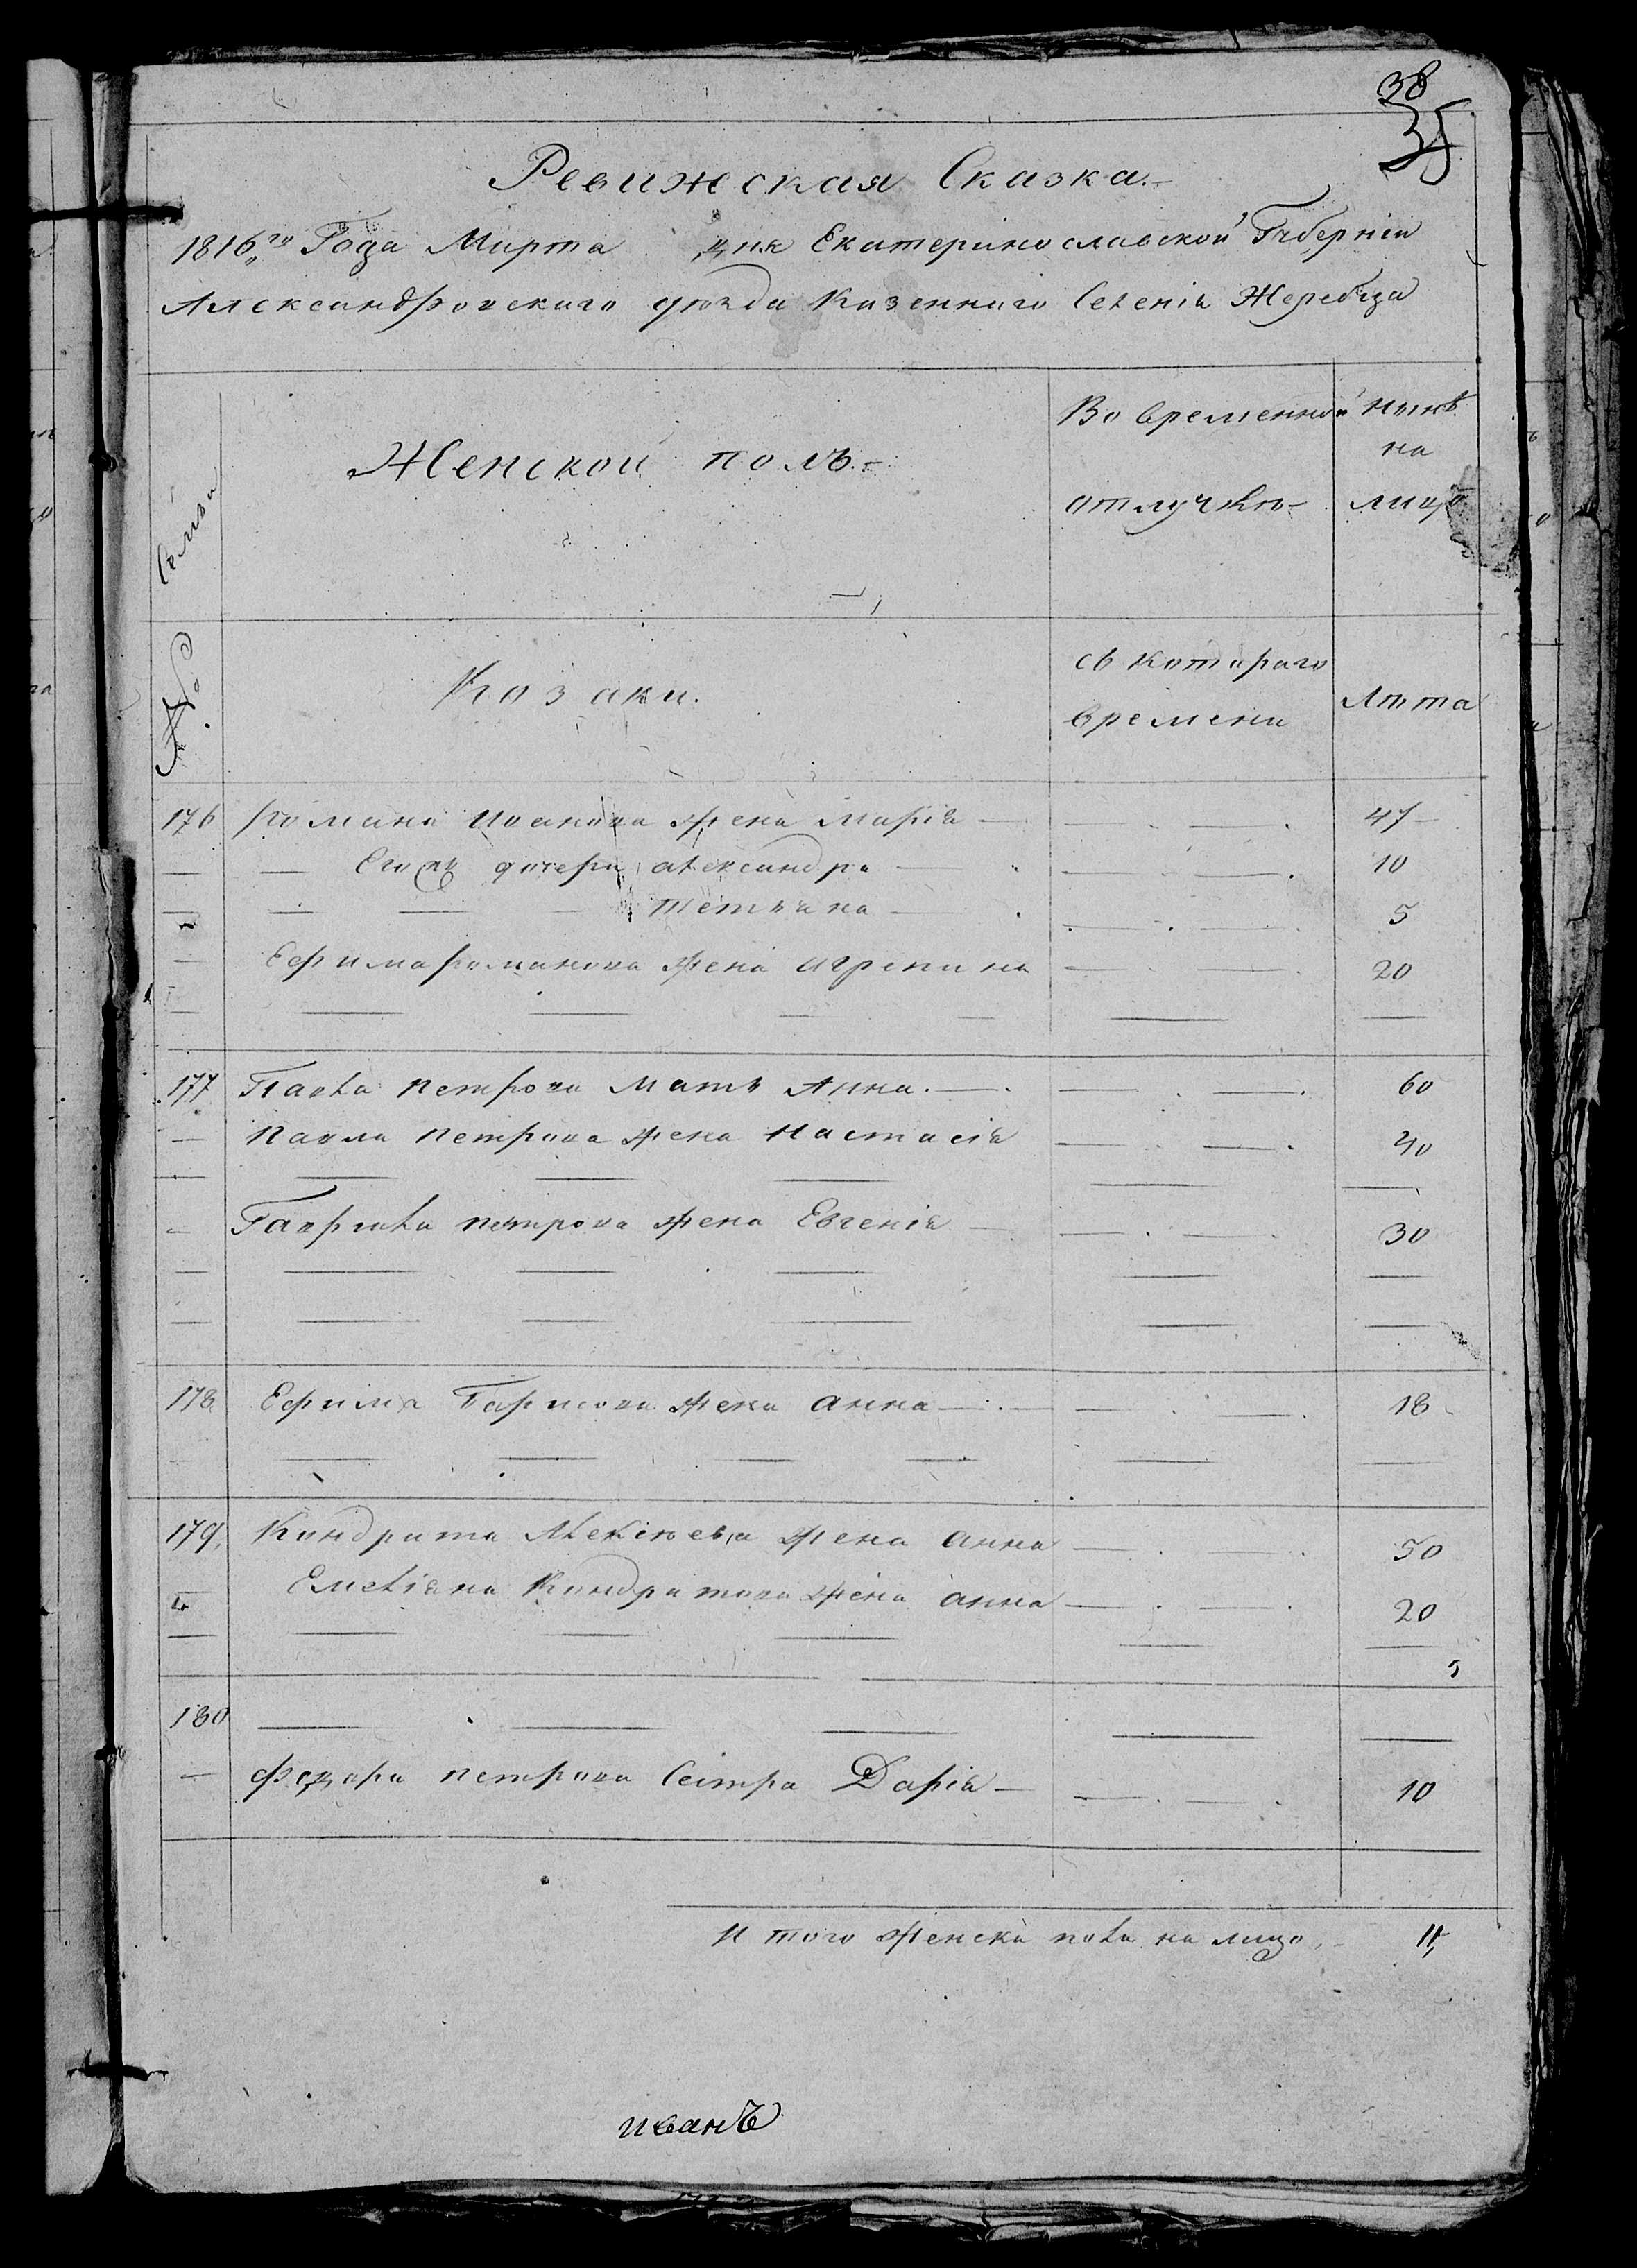 38
35
Ревижская Сказка.
1816го Года Марта дня Екатеринославской Губерніи
Александровскаго уѣзда Казеннаго Селенія Жеребца
Женской полъ
Во временной
отлучкѣ
нынѣ
на
лицо
Семьи
№
Козаки.
съ котораго
времени
Лѣта
176 Романа Иванова жена Марія 47
Его дочери александра 10
Тетьяна 5
Ефима Романова жена агрепина 20
177 Павла Петрова Мать Анна. 60
Павла Петрова жена Настасія 40
Гаврила Петрова жена Евгенія 30
178 Ефима Барисова жена анна 18
179 Кондрата Алексѣева жена анна 50
Емеліяна Кондратова жена анна 20
180
Федора Петрова Сестра Дарія 10
Итого женска пола на лицо 11
иванъ